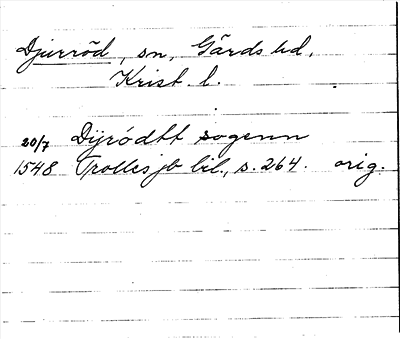 Djurröd, sn, Gärds hd,
Krist. l.
20/7 Dÿrödtt sogenn
1548 Trolles jb bil., s. 264. orig.